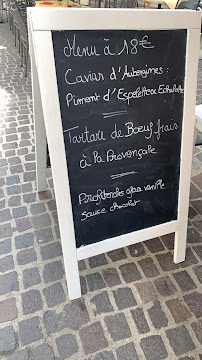 Menu à 18€
Caviar d'Aubergines :
Piment d'Espelette et Echalotte
Tartare de Bœuf frais
à la Provençale
Profiteroles glace vanille
sauce chocolat